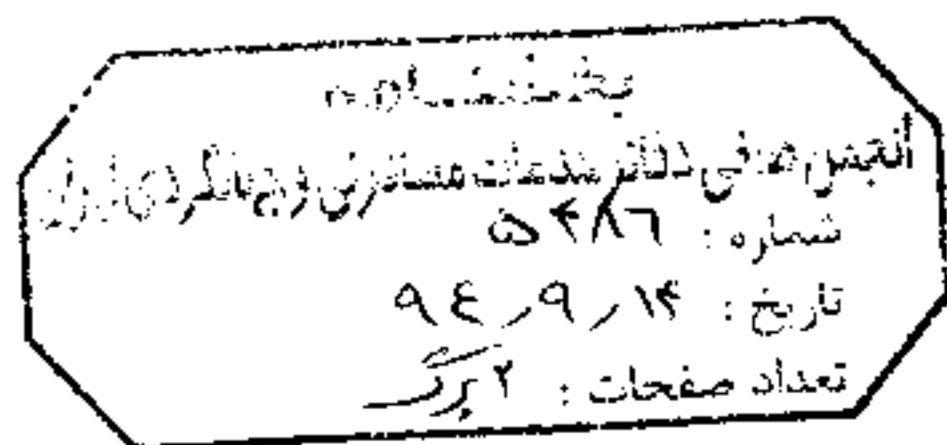 بخشنامه
انجمن صنفی دفاتر خدمات مسافرتی و جهانگردی ایران
شماره : ۵۴۸۶
تاریخ : ۹۴٫۹٫۱۴
تعداد صفحات : ۲ برگ